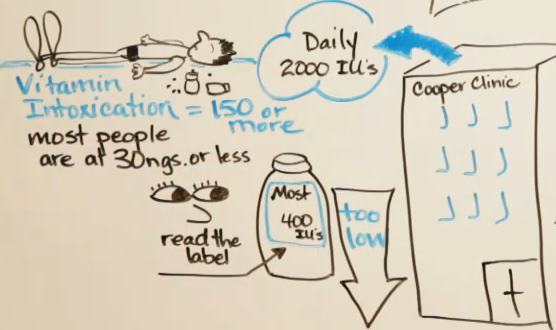 Daily
2000 IU's
Cooper Clinic
Vitamin
Intoxication = 150 or
more
most people
are at 30ngs. or less
Most
400
IU's
too
low
read the
label